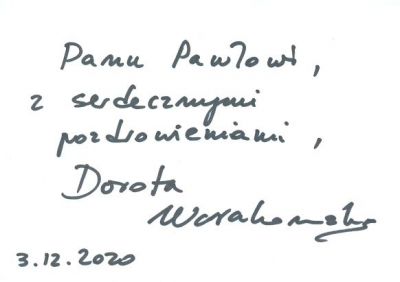 Panu Pawłowi,
z serdecznymi
pozdrowieniami,
Dorota
3.12.2020